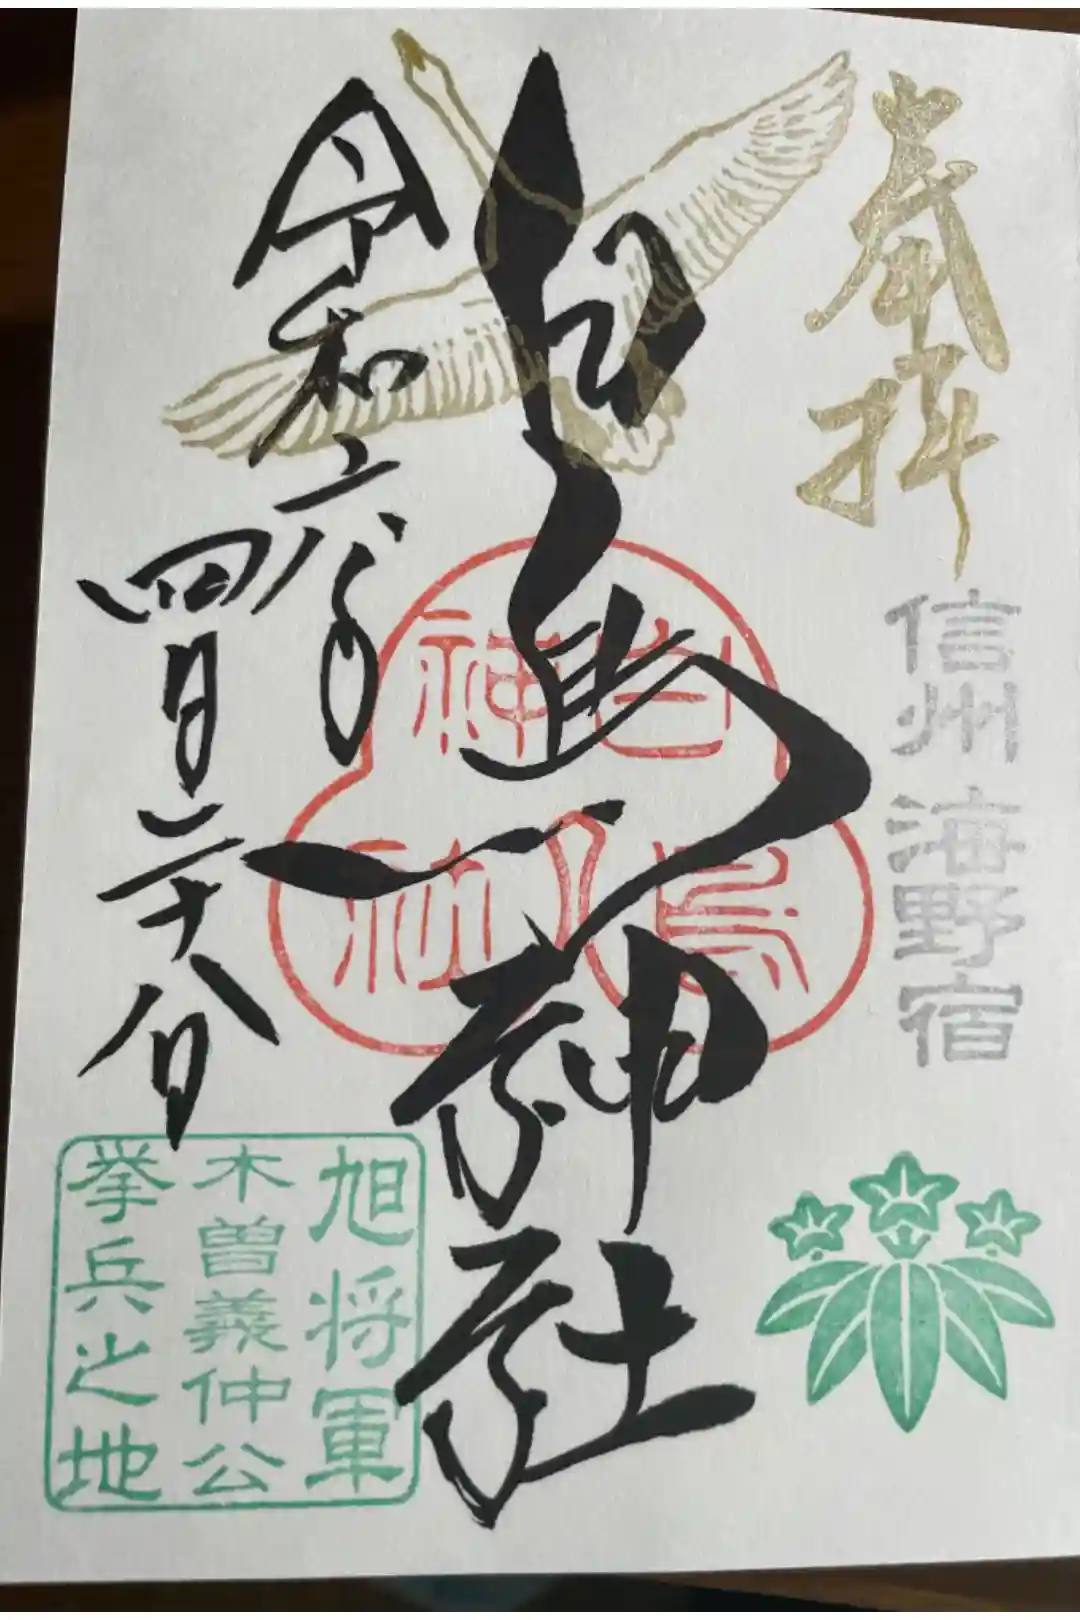 奉拝
信州 海野宿
白鳥神社
白鳥
神社
令和六年
四月二十八日
旭将軍
木曽義仲公
挙兵之地